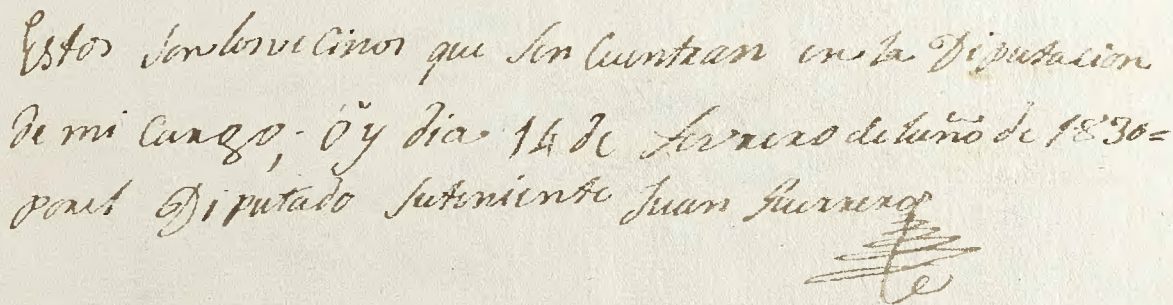 Estos son losvecinos que sen Cuentran en la Diputacion
de mi Cargo; oy dia 14 de Febrero delaño de 1830=
porel Diputado suteniente Juan Guerrero